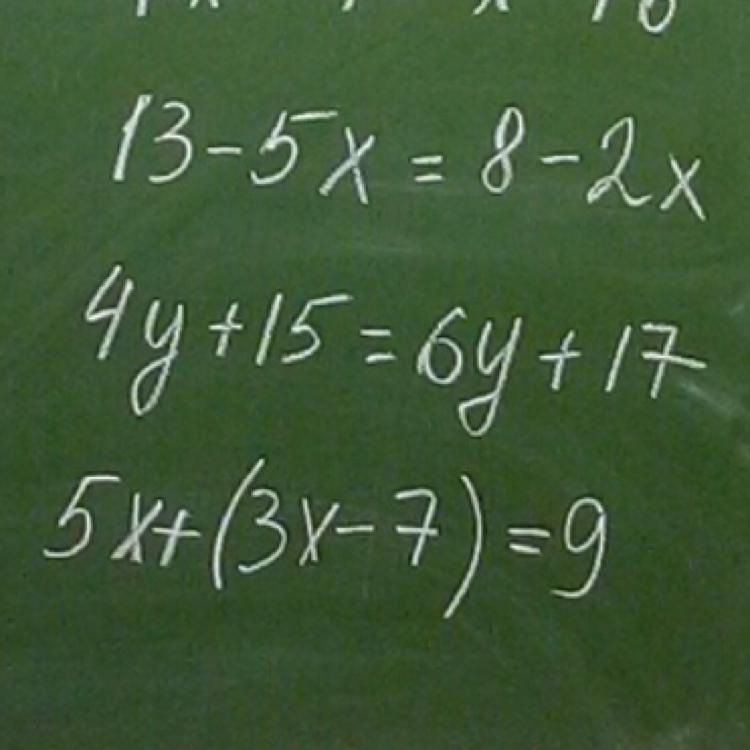 13-5x=8-2x
4y+15=6y+17
5x+(3x-7)=9